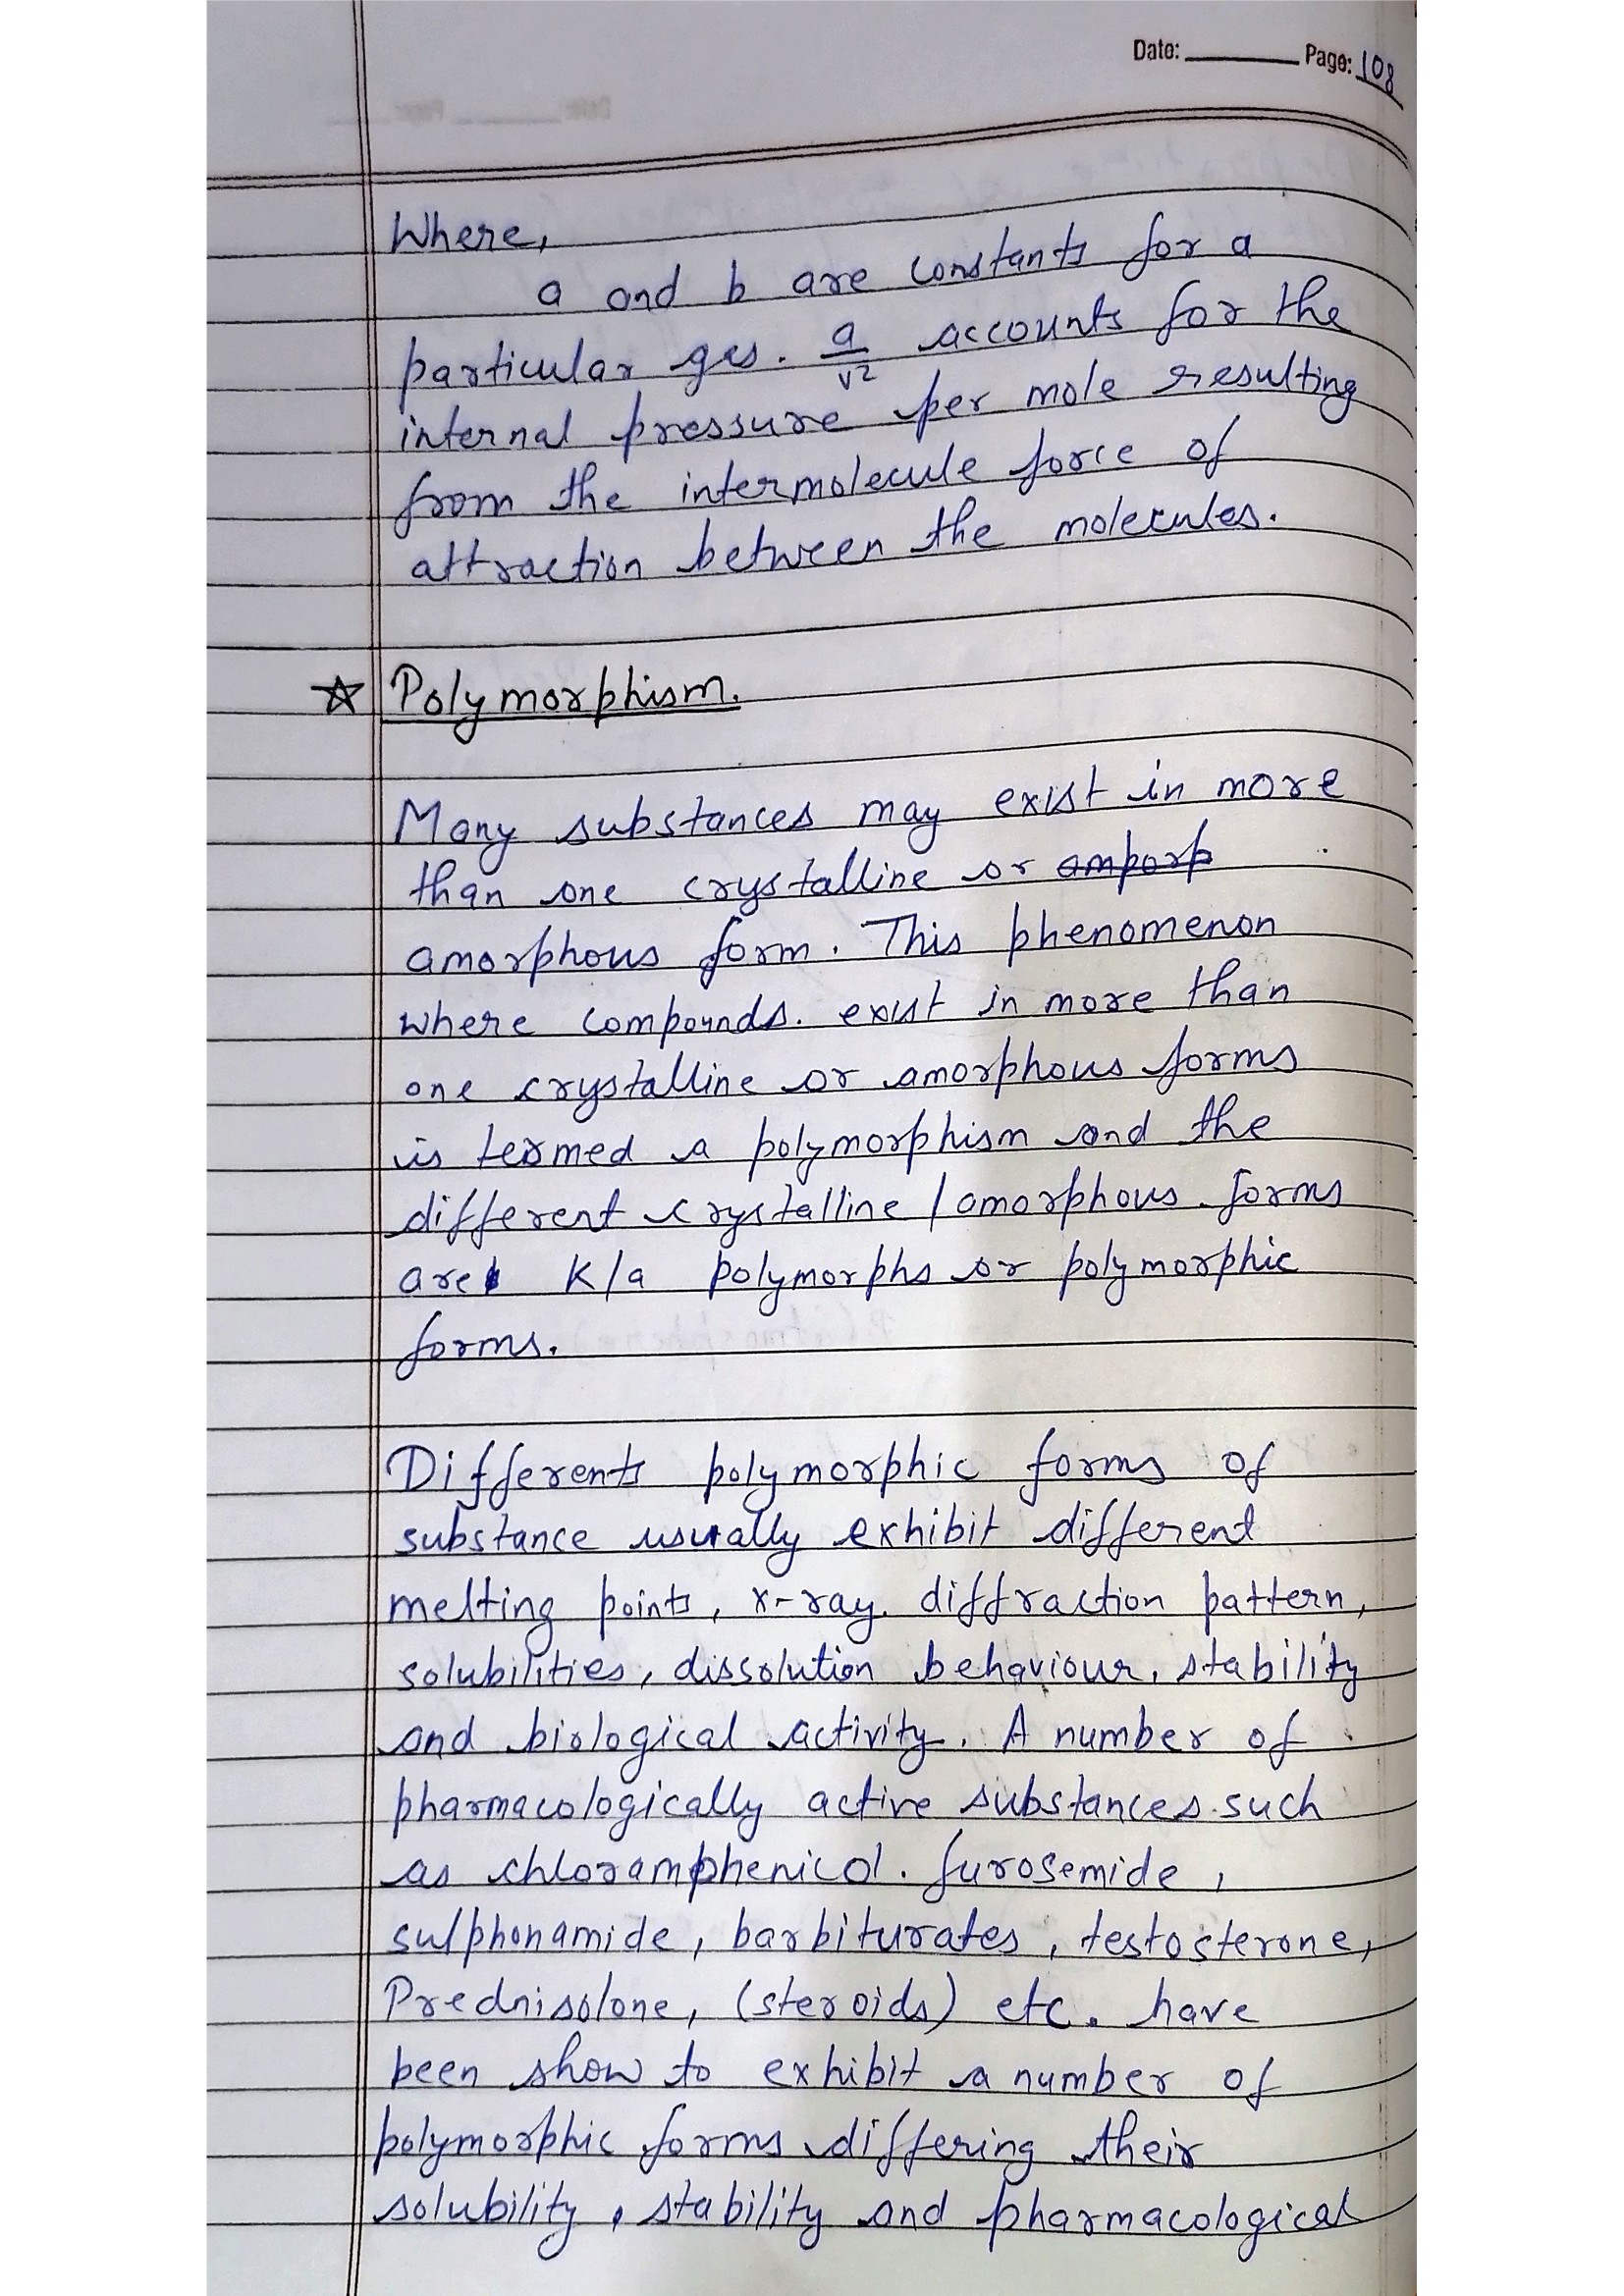 Date: ________ Page: 108
Where,
a and b are constants for a
particular gas. a/v2 accounts for the
internal pressure per mole resulting
from the intermolecule force of
attraction between the molecules.
☆ Polymorphism.
Many substances may exist in more
than one crystalline or amporp
amorphous form. This phenomenon
where compounds. exist in more than
one crystalline or amorphous forms
is termed a polymorphism and the
different crystalline / amorphous forms
are K/a polymorphs or polymorphic
forms.
Differents polymorphic forms of
substance usually exhibit different
melting points, x-ray. diffraction pattern,
solubilities, dissolution behaviour, stability
and biological activity. A number of
pharmacologically active substances such
as chloramphenicol. furosemide,
sulphonamide, barbiturates, testosterone,
Prednisolone, (steroids) etc. have
been show to exhibit a number of
polymorphic forms differing their
solubility, stability and pharmacological